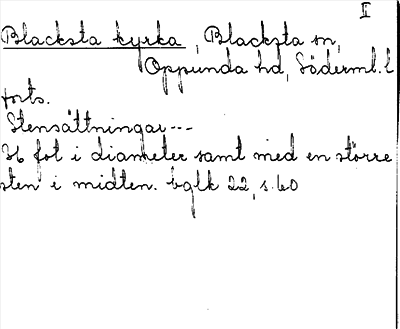 II
Blacksta kyrka, Blacksta sn,
Oppunda hd, Söderml. l
forts.
Stensättningar ---
36 fot i diameter samt med en större
sten i midten. bglk 22, s. 60